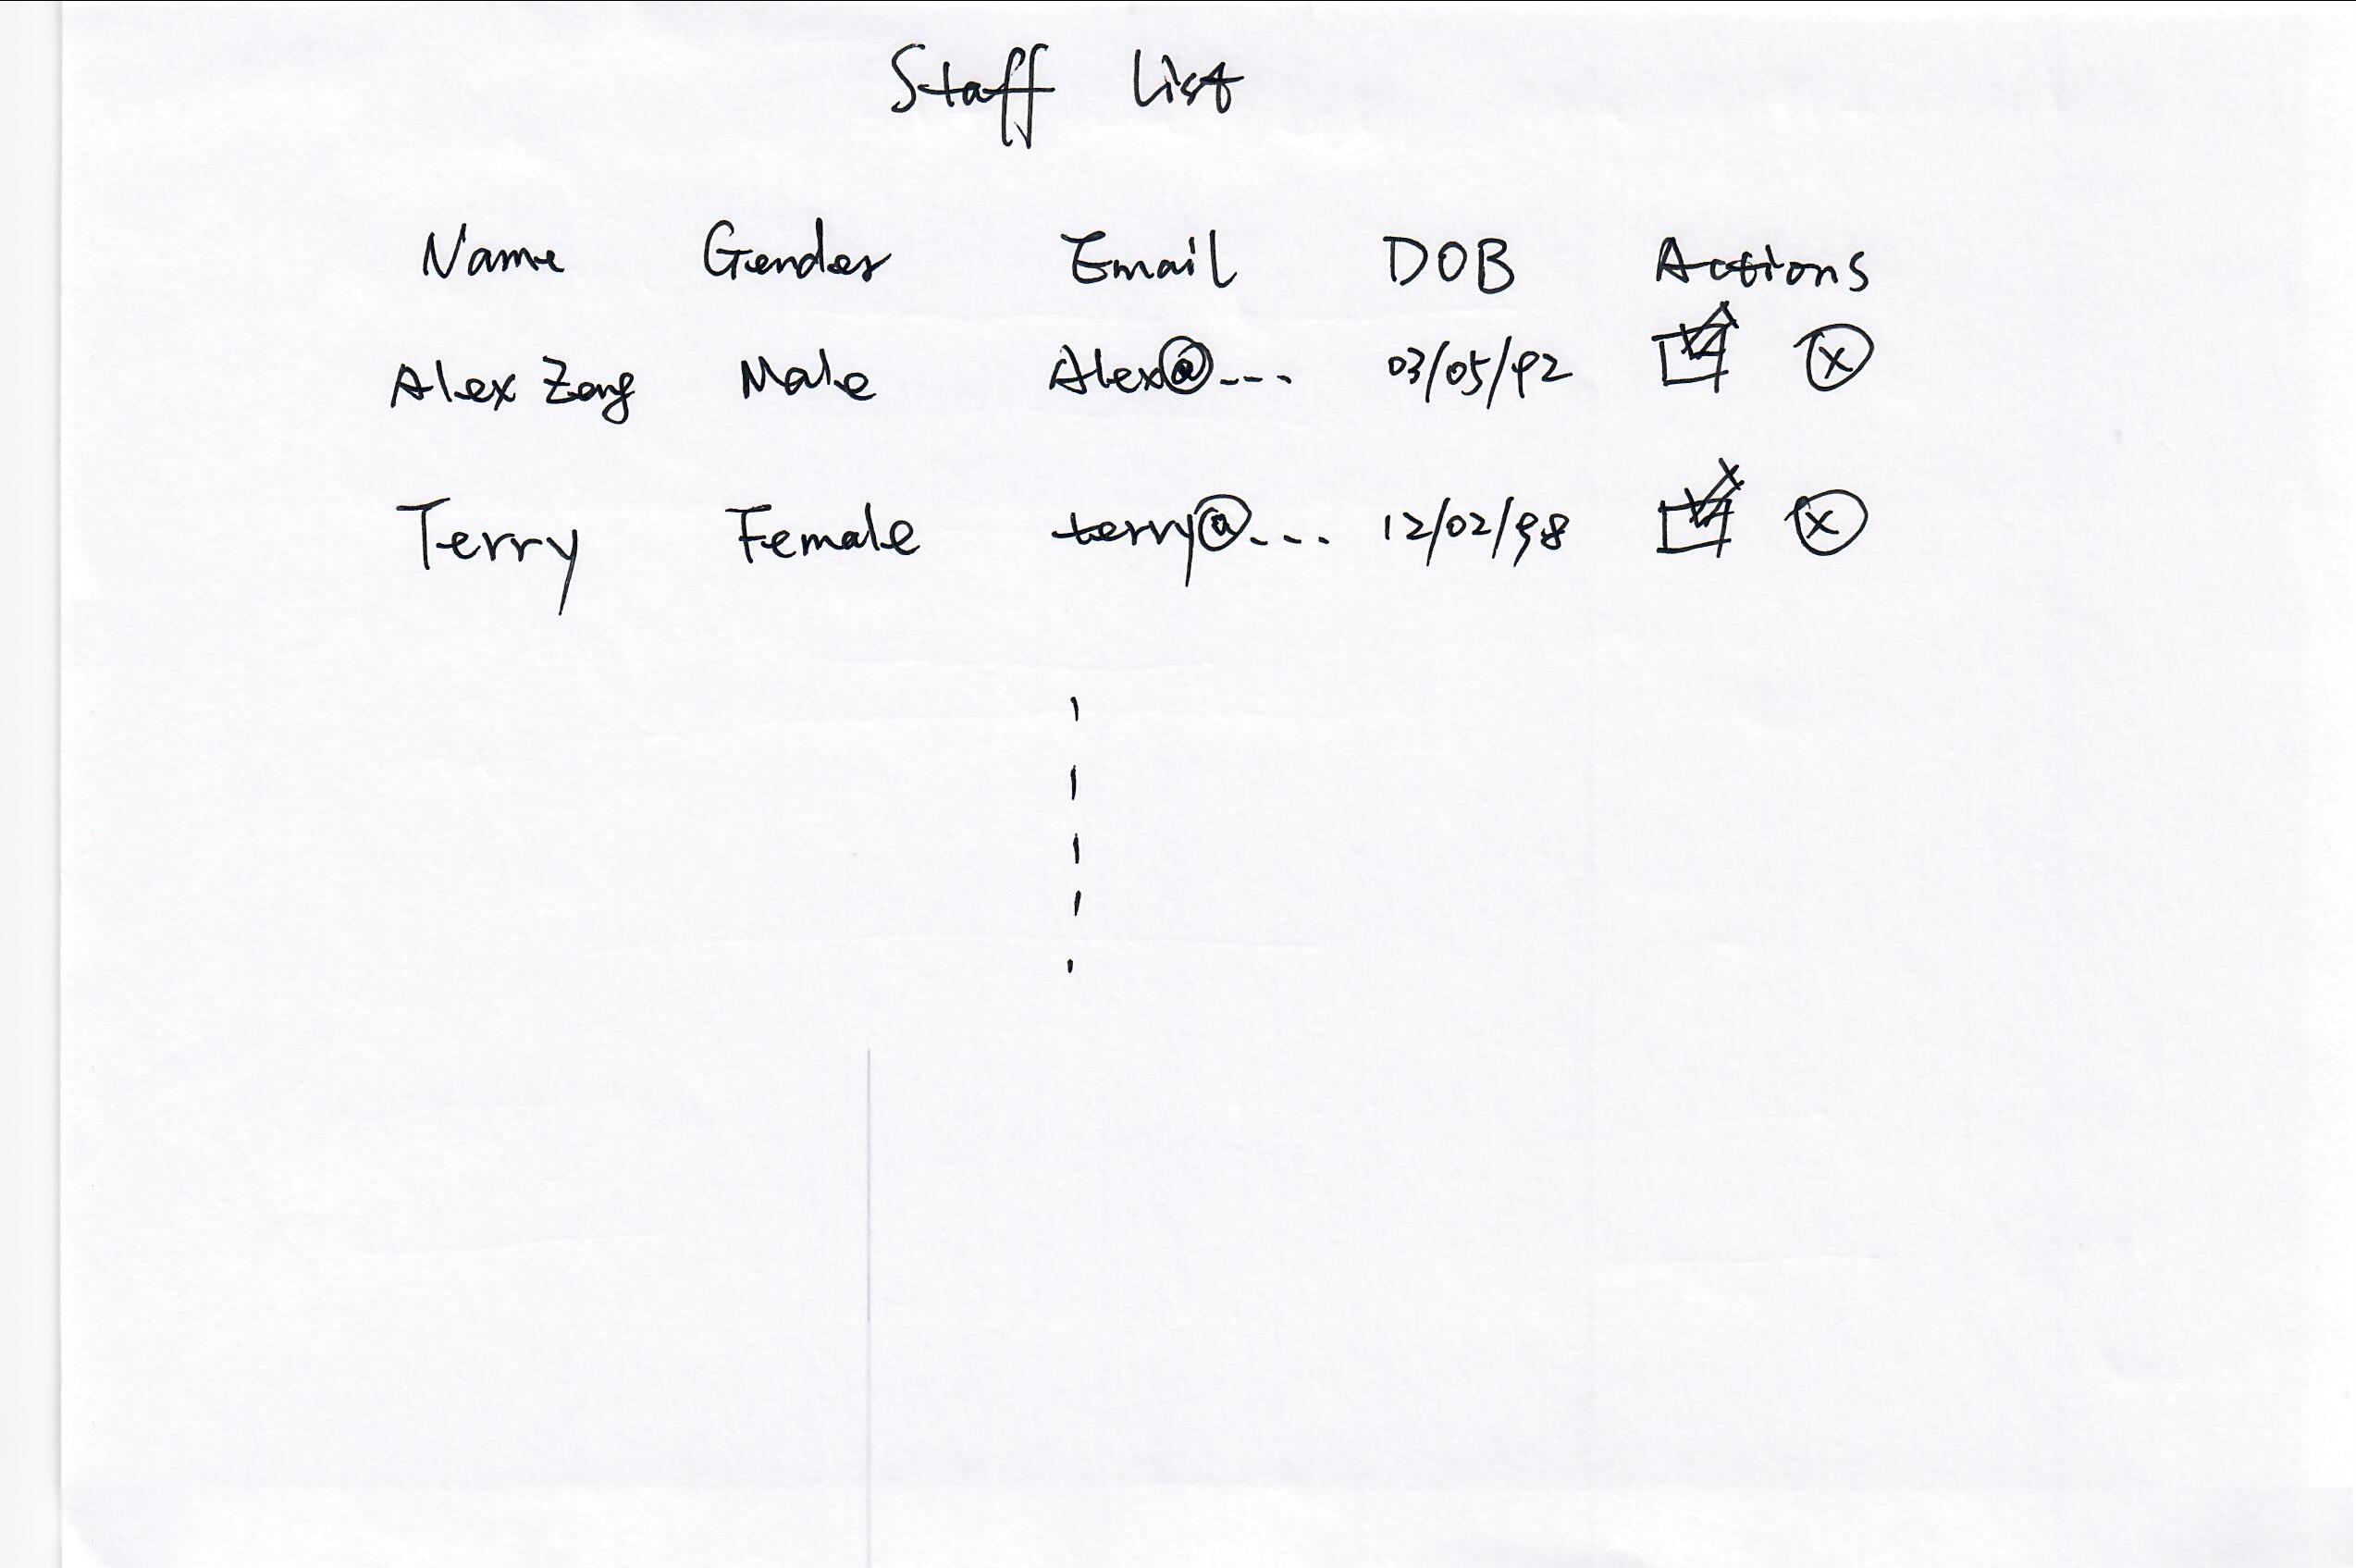 Staff List
Name Gender Email DOB Actions
Alex Zeng Male Alex@--- 03/05/92
Terry Female terry@... 12/02/98